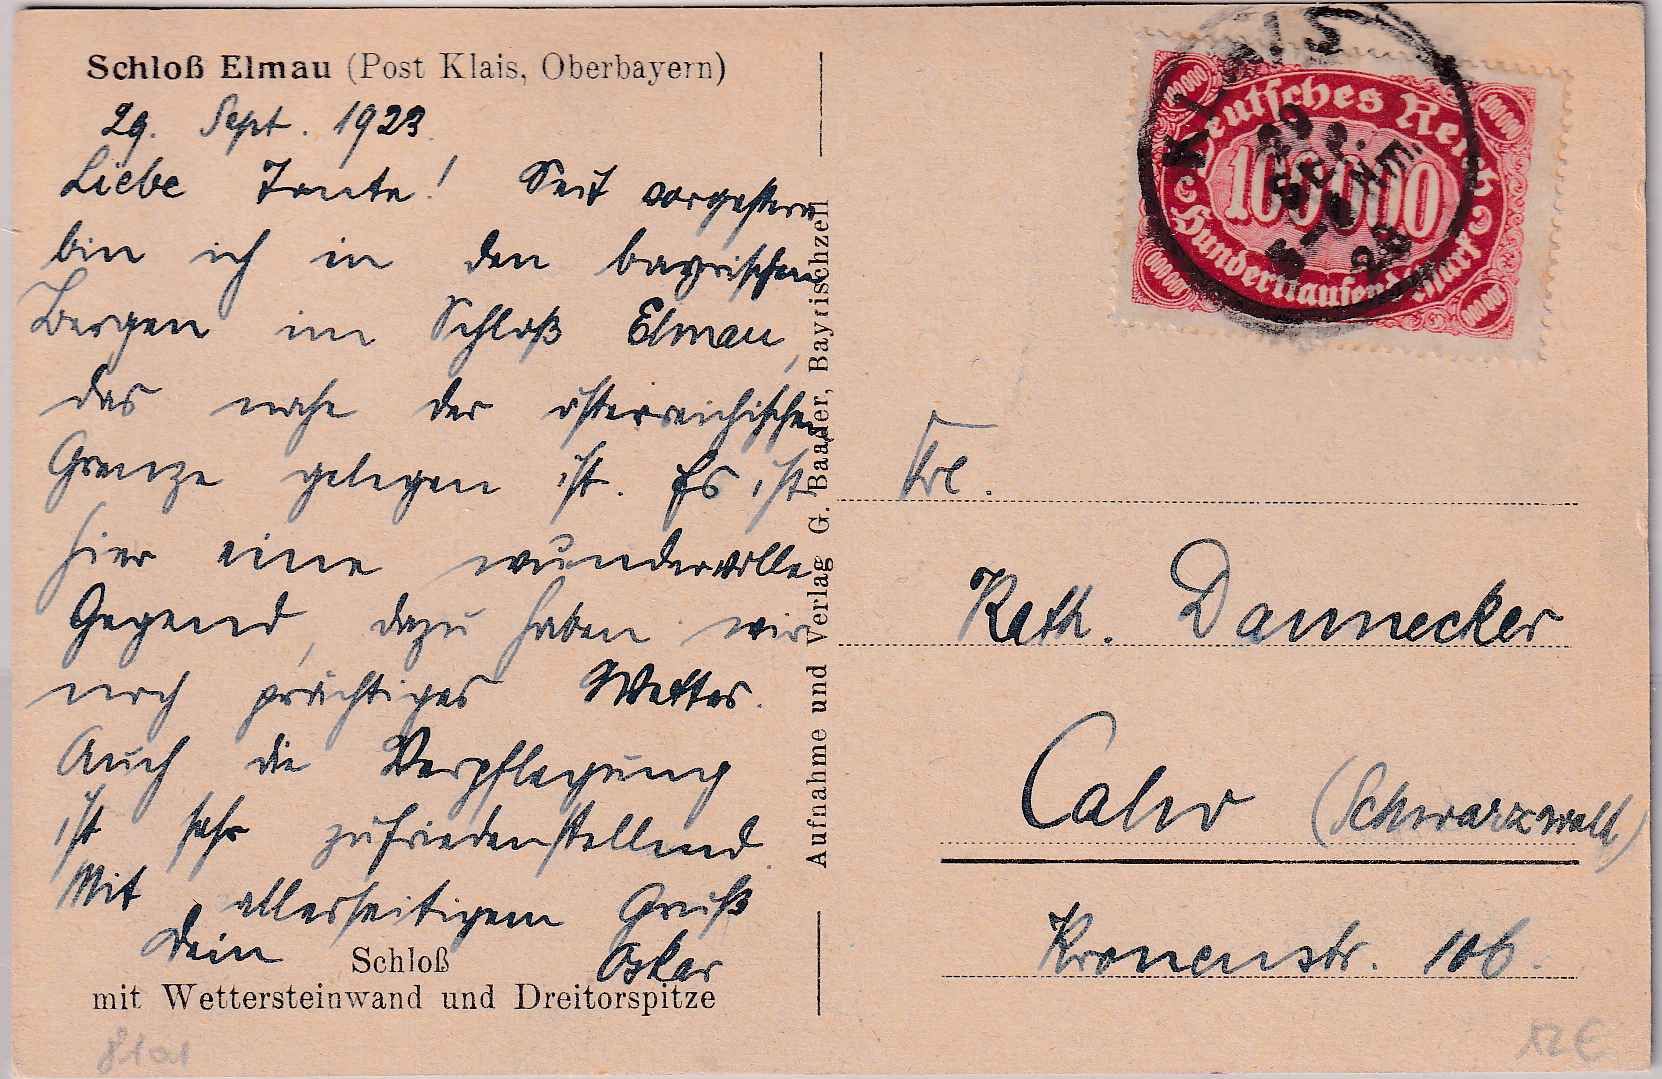 Schloß Elmau (Post Klais, Oberbayern)
29. Sept. 1923.
Liebe Tante! Seit vorgestern
bin ich in den bayrischen
Bergen im Schloß Elmau,
das nahe der österreichischen
Grenze gelegen ist. Es ist
hier eine wundervolle
Gegend, dazu haben wir
noch prächtiges Wetter.
Auch die Verpflegung
ist sehr zufriedenstellend.
Mit allerseitigem Gruß
Dein Oskar
Schloß
mit Wettersteinwand und Dreitorspitze
8101
Aufnahme und Verlag G. Baader, Bayrischzell
KLAIS
Deutsches Reich
100000
Hunderttausend Mark
100000
100000
100000
100000
Frl.
Kath. Dannecker
Calw (Schwarzwald)
Kronenstr. 106.
12 €